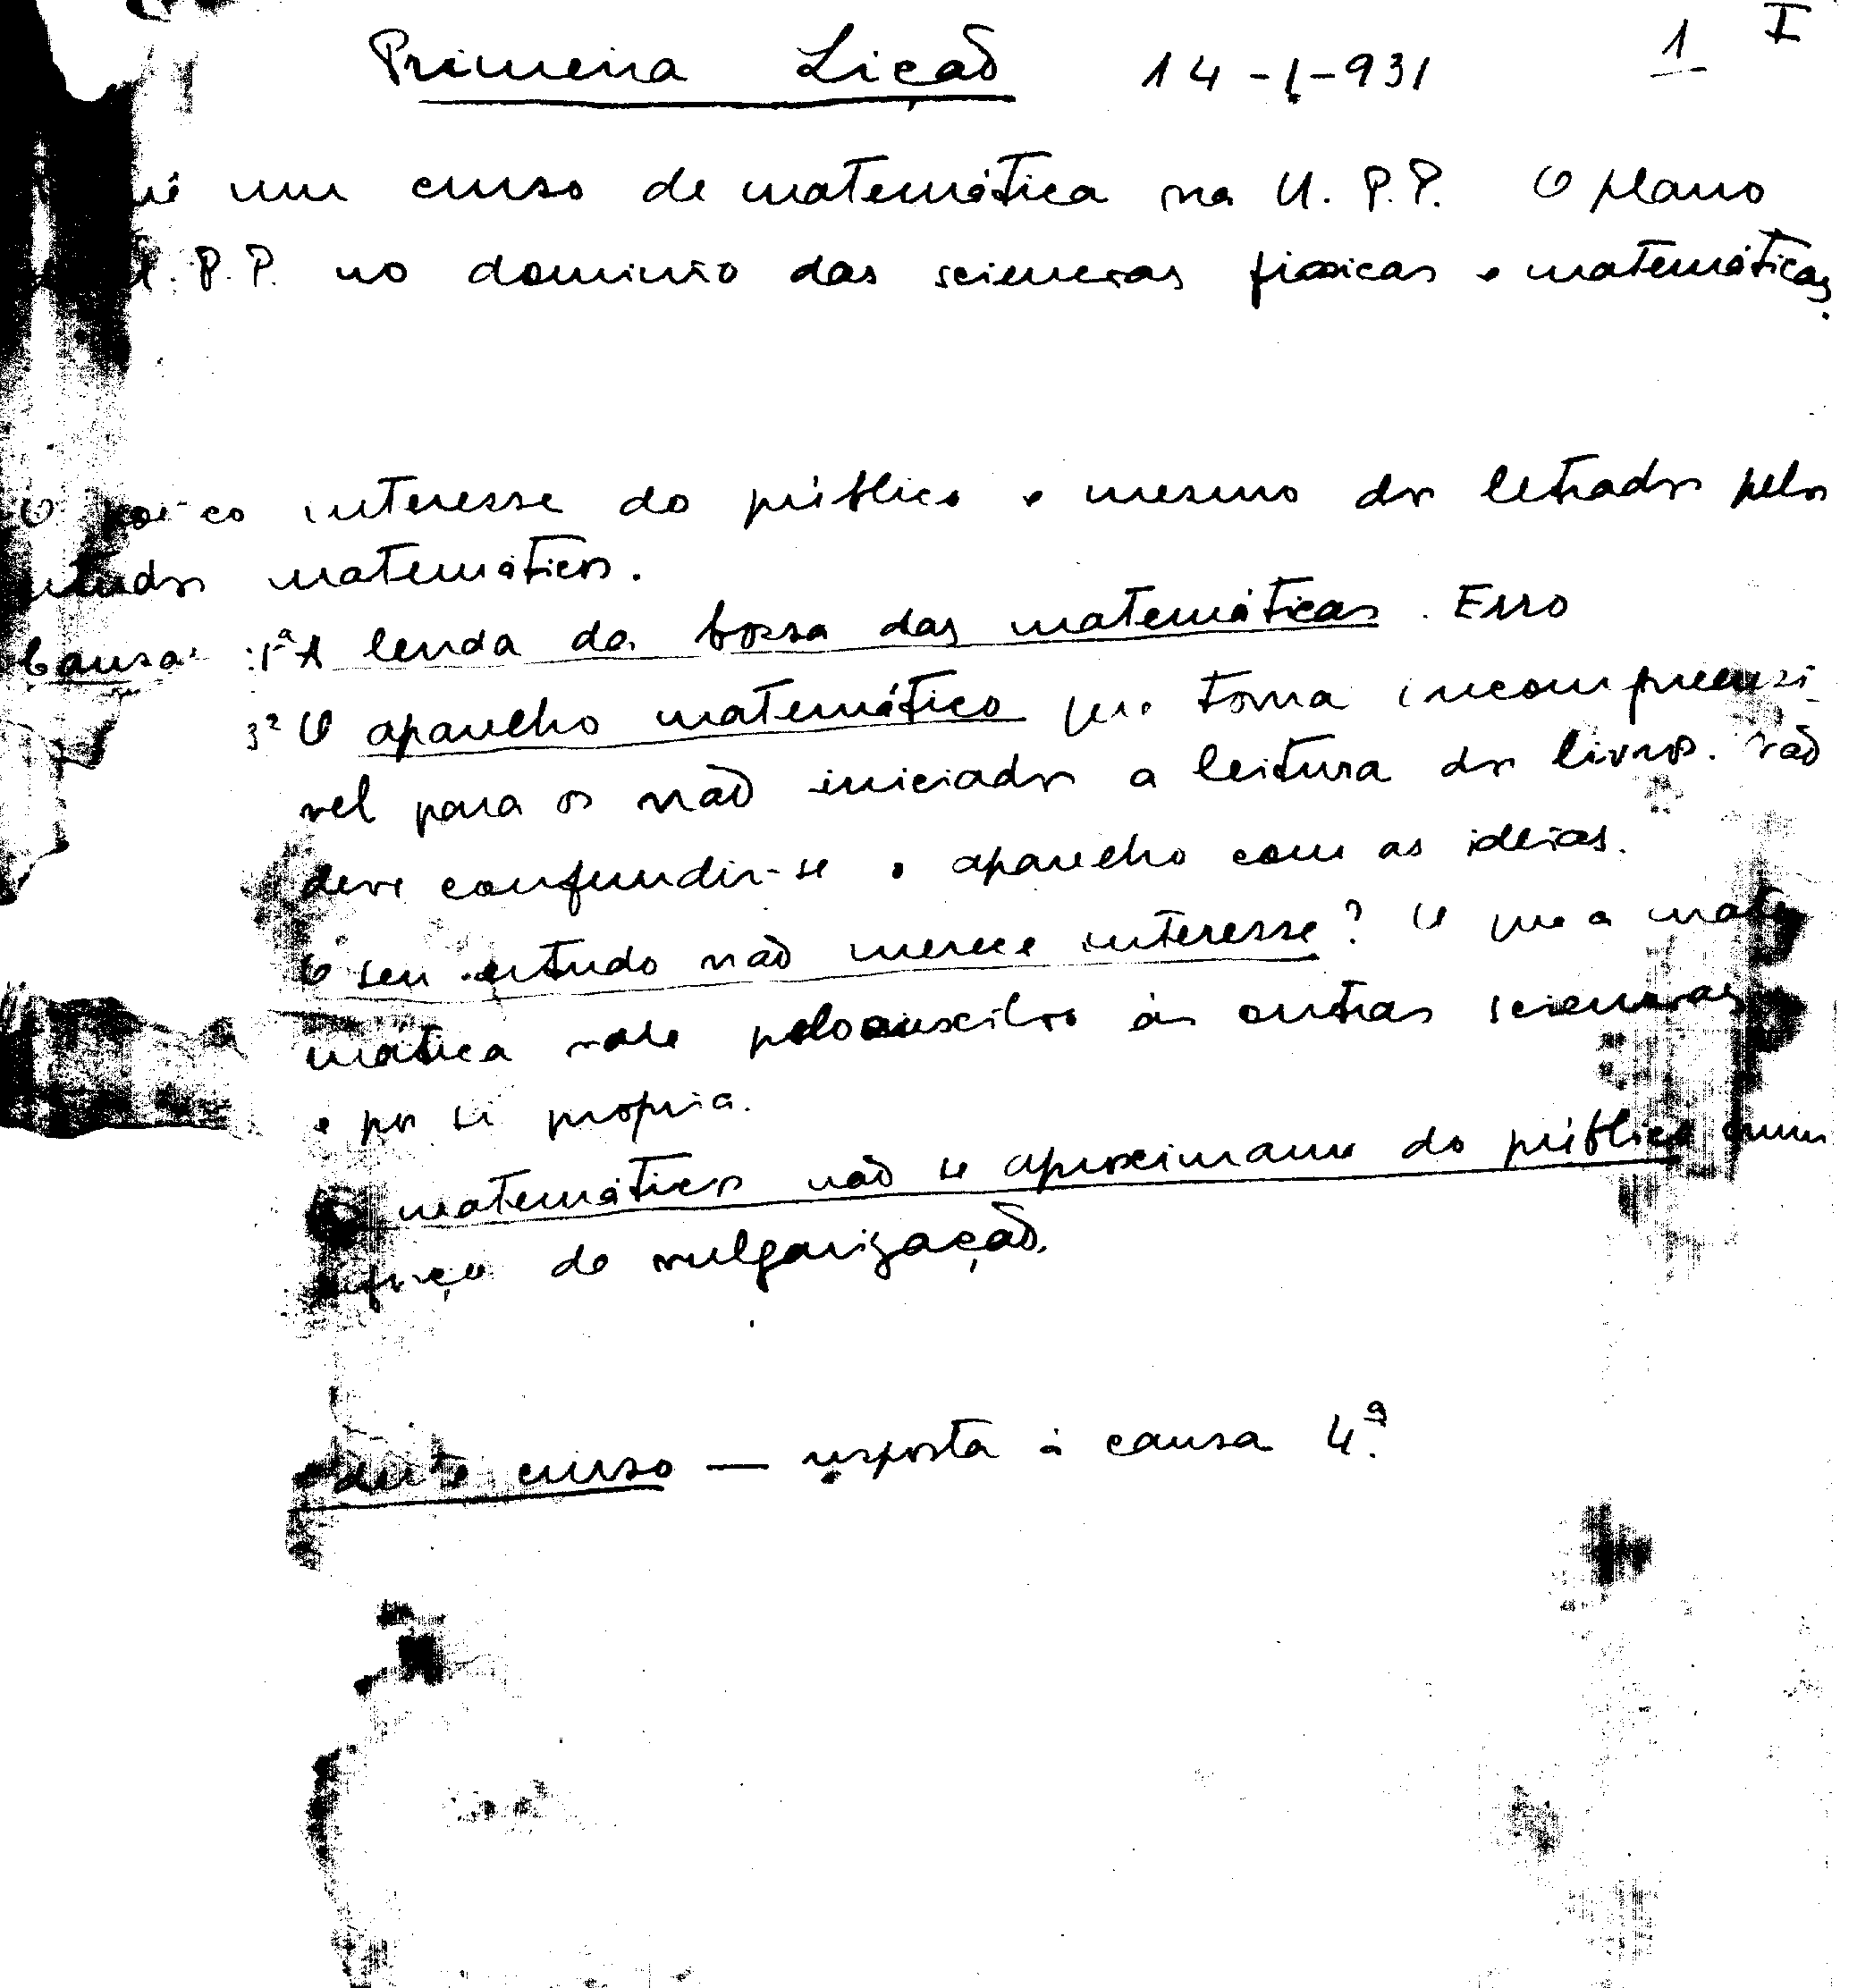 Primeira Lição 14-1-931 1 I
um curso de matemática na U. P. P. O plano
U. P. P. no dominio das sciencias fisicas e matemáticas.
O pouco interesse do público e mesmo dos letrados pelos
estudos matemáticos.
Causas: 1ª A lenda da bossa das matemáticas. Erro
3ª O aparelho matemático que torna incompreensi-
vel para os não iniciados a leitura dos livros. Não
deve confundir-se o aparelho com as ideias.
O seu estudo não merece interesse? O que a mate-
mática vale pelo auxilio às outras sciencias
e por si propria.
matemáticos não se aproximam do público num
esforço de vulgarização.
deste curso — resposta à causa 4ª.